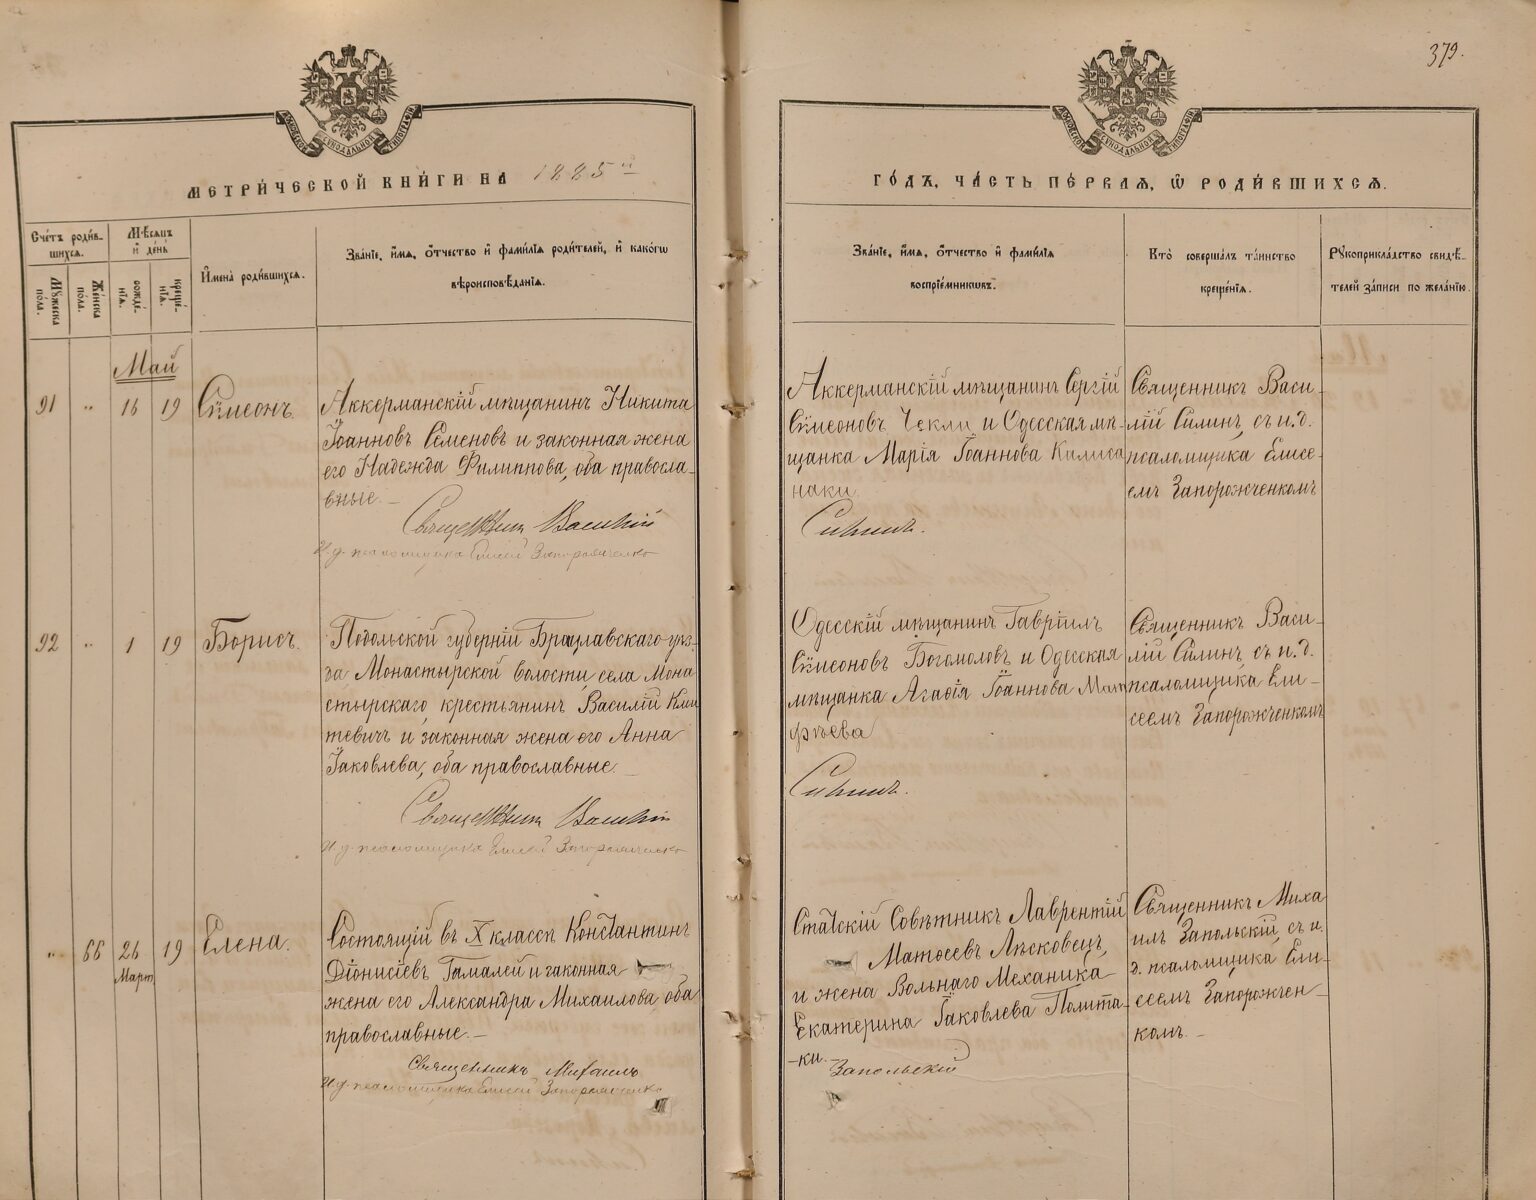 379.
МОСКОВСКОЙ СѴНОДАЛЬНОЙ ТИПОГРАФІИ
МОСКОВСКОЙ СѴНОДАЛЬНОЙ ТИПОГРАФІИ
МЕТРИ́ЧЕСКОЙ КНИ́ГИ НА 1885й
ГО́ДЪ, ЧА́СТЬ ПЕ́РВАЯ, Ѿ РОДИ́ВШИХСЯ.
Сче́тъ роди́в-
шихся.
Му́жеска
по́ла.
Же́нска
по́ла.
Мѣ́сяцъ
и҆ де́нь
рожде́-
нія.
креще́-
нія.
И҆мена̀ роди́вшихся.
Зва́ніе, и҆́мя, ѻ҆́тчество и҆ фами́лія роди́телей, и҆ како́гѡ
вѣроисповѣ́данія.
Зва́ніе, и҆́мя, ѻ҆́тчество и҆ фами́лія
воспріе́мникѡвъ.
Кто̀ соверша́лъ та́инство
креще́нія.
Рукоприкла́дство свидѣ́-
телей за́писи по жела́нію.
Май
91 „ 16 19
Сѵмеонъ
Аккерманскій мѣщанинъ Никита
Іоанновъ Семеновъ и законная жена
его Надежда Филиппова, оба правосла-
вные.
Священникъ Василій
И.д. псаломщика Елисей Запорожченко
Аккерманскій мѣщанинъ Сергій
Сѵмеоновъ Чекли и Одесская мѣ-
щанка Марія Іоаннова Калиса
наки
Силинъ.
Священникъ Васи-
лій Силинъ, съ и.д.
псаломщика Елисе-
емъ Запорожченкомъ
92 „ 1 19
Борисъ.
Подольской губерніи Брацлавскаго уѣз-
да, Монастырской волости, села Мона
стырскаго крестьянинъ Василій Кли
тевичъ и законная жена его Анна
Іаковлева, оба православные.
Священникъ Василій
И.д. псаломщика Елисей Запорожченко
Одесскій мѣщанинъ Гавріилъ
Сѵмеоновъ Богомоловъ и Одесская
мѣщанка Агафія Іоаннова Мат
фѣева
Силинъ.
Священникъ Васи-
лій Силинъ, съ и.д.
псаломщика Ели-
сеемъ Запорожченкомъ
„ 66 26 19
Март
Елена.
Состоящій въ X классѣ Константинъ
Діонисіевъ Гамалей и законная
жена его Александра Михаилова, оба
православные.
Священникъ Михаилъ
И.д. псаломщика Елисей Запорожченко
Статскій Совѣтникъ Лаврентій
Матѳеевъ Лѣсковецъ,
и жена Вольнаго Механика
Екатерина Іаковлева Полита-
-ки.
Запольскій
Священникъ Миха
илъ Запольскій, съ и.
д. псаломщика Ели-
сеемъ Запорожчен-
комъ.